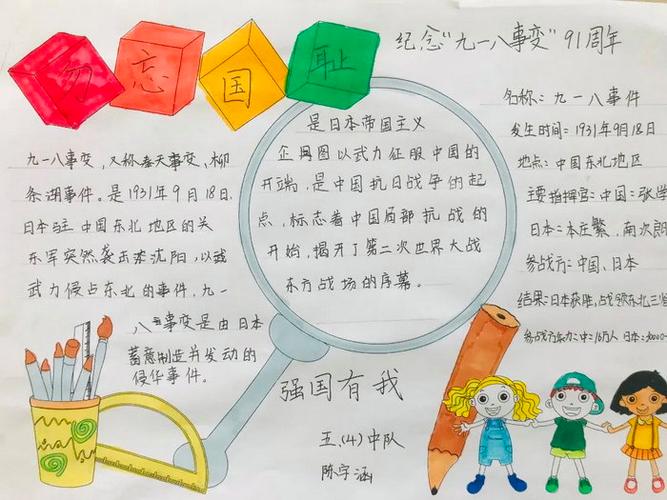 勿忘国耻
纪念"九一八事变"91周年
九一八事变,又称奉天事变、柳
条湖事件。是1931年9月18日,
日本驻中国东北地区的关
东军突然袭击沈阳,以
武力侵占东北的事件,九一
八事变是由日本
蓄意制造并发动的
侵华事件。
是日本帝国主义
企图以武力征服中国的
开端,是中国抗日战争的起
点,标志着中国局部抗战的
开始,揭开了第二次世界大战
东方战场的序幕。
名称:九一八事件
发生时间:1931年9月18日
地点:中国东北地区
主要指挥官:中国:张学
日本:本庄繁,南次郎
参战方:中国、日本
结果:日本获胜,占领东北三省
参战方兵力:中:16万人 日本:
强国有我
五.(4)中队
陈宇涵